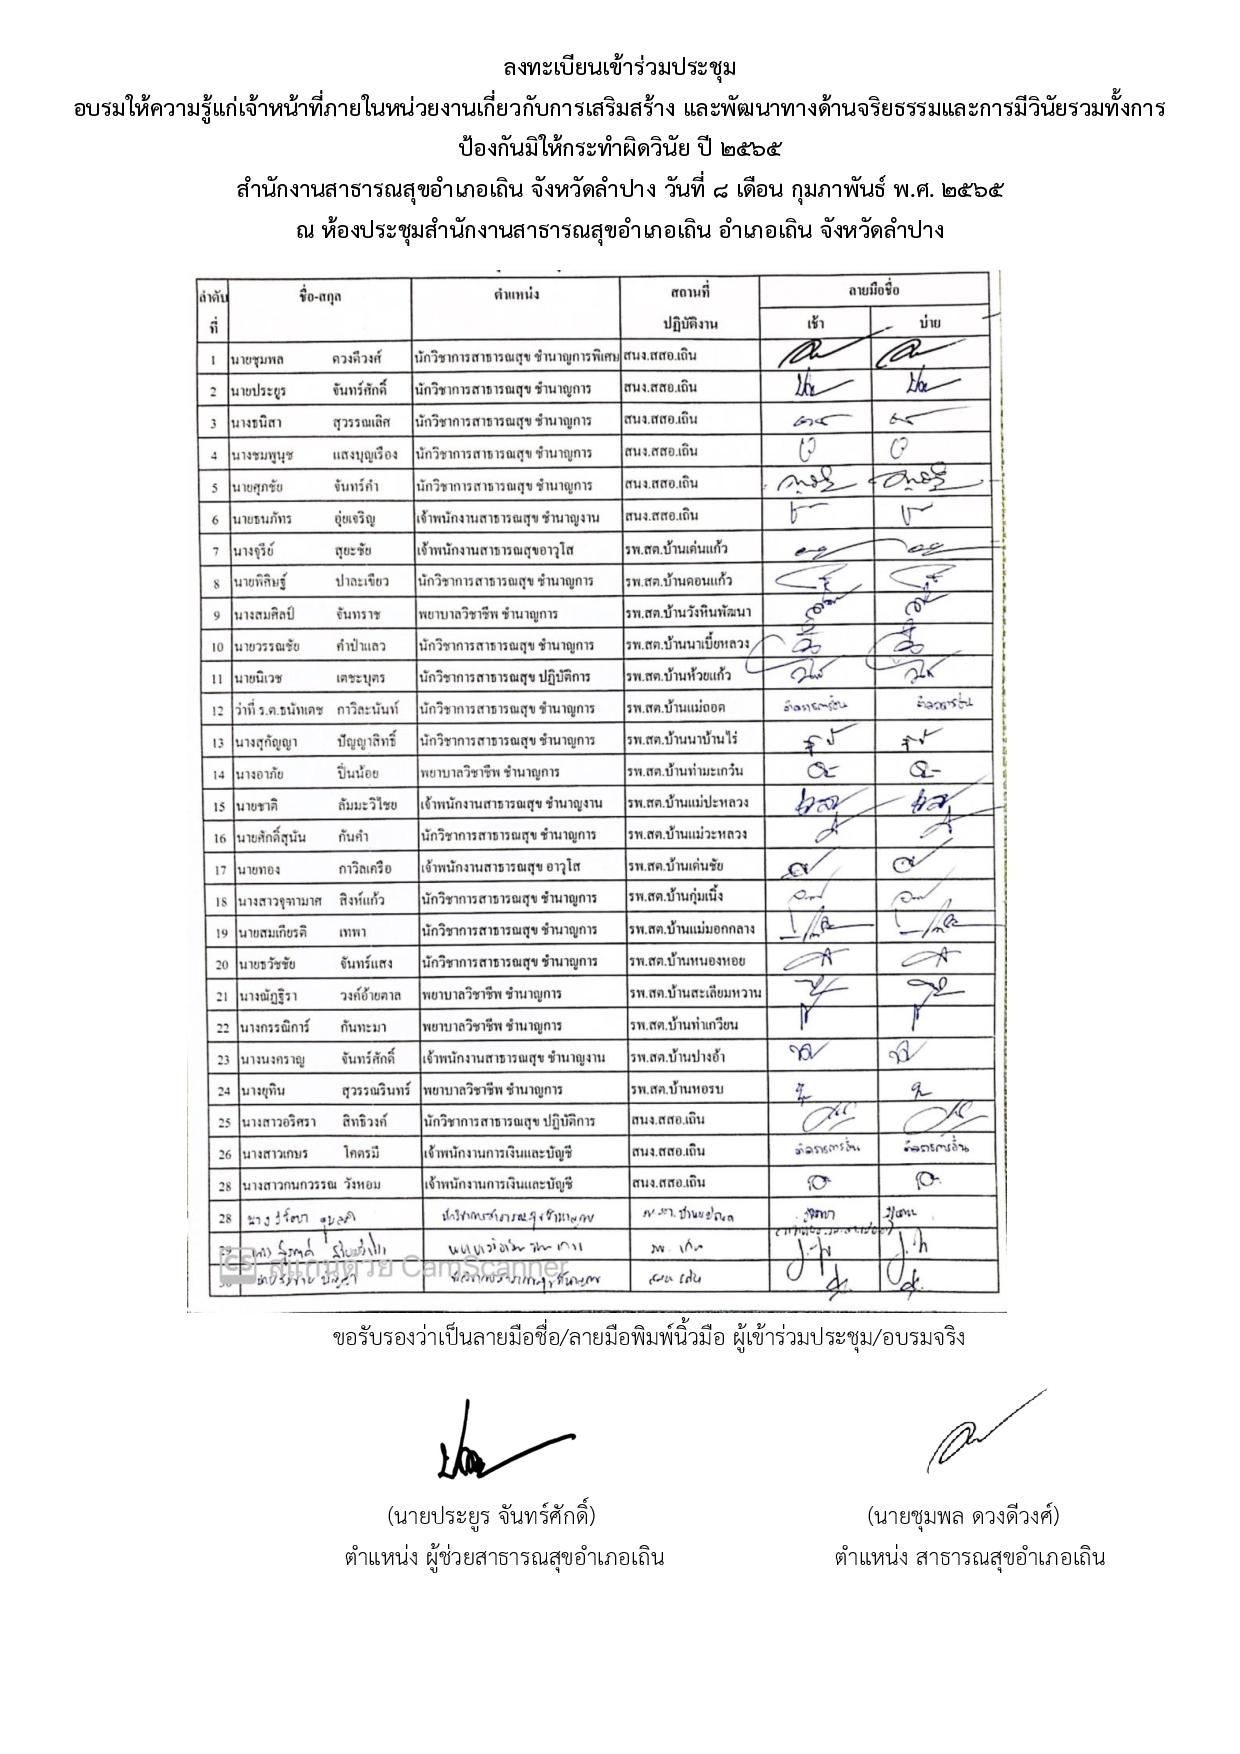 ลงทะเบียนเข้าร่วมประชุม
อบรมให้ความรู้แก่เจ้าหน้าที่ภายในหน่วยงานเกี่ยวกับการเสริมสร้าง และพัฒนาทางด้านจริยธรรมและการมีวินัยรวมทั้งการ
ป้องกันมิให้กระทำผิดวินัย ปี ๒๕๖๕
สำนักงานสาธารณสุขอำเภอเถิน จังหวัดลำปาง วันที่ ๘ เดือน กุมภาพันธ์ พ.ศ. ๒๕๖๕
ณ ห้องประชุมสำนักงานสาธารณสุขอำเภอเถิน อำเภอเถิน จังหวัดลำปาง
ลำดับที่ ชื่อ-สกุล ตำแหน่ง สถานที่ปฏิบัติงาน ลายมือชื่อ
เช้า บ่าย
1 นายชุมพล ดวงดีวงศ์ นักวิชาการสาธารณสุข ชำนาญการพิเศษ สนง.สสอ.เถิน
2 นายประยูร จันทร์ศักดิ์ นักวิชาการสาธารณสุข ชำนาญการ สนง.สสอ.เถิน
3 นางธนิสา สุวรรณเลิศ นักวิชาการสาธารณสุข ชำนาญการ สนง.สสอ.เถิน
4 นางชมพูนุช แสงบุญเรือง นักวิชาการสาธารณสุข ชำนาญการ สนง.สสอ.เถิน
5 นายศุภชัย จันทร์คำ นักวิชาการสาธารณสุข ชำนาญการ สนง.สสอ.เถิน
6 นายธนภัทร อุ่ยเจริญ เจ้าพนักงานสาธารณสุข ชำนาญงาน สนง.สสอ.เถิน
7 นางจุรีย์ สุยะชัย เจ้าพนักงานสาธารณสุขอาวุโส รพ.สต.บ้านเด่นแก้ว
8 นายพิศิษฐ์ ปาละเขียว นักวิชาการสาธารณสุข ชำนาญการ รพ.สต.บ้านดอนแก้ว
9 นางสมศิลป์ จันทราช พยาบาลวิชาชีพ ชำนาญการ รพ.สต.บ้านวังหินพัฒนา
10 นายวรรณชัย คำป่าแลว นักวิชาการสาธารณสุข ชำนาญการ รพ.สต.บ้านนาเบี้ยหลวง
11 นายนิเวช เตชะบุตร นักวิชาการสาธารณสุข ปฏิบัติการ รพ.สต.บ้านห้วยแก้ว
12 ว่าที่ ร.ต.ธนัทเดช กาวิละนันท์ นักวิชาการสาธารณสุข ชำนาญการ รพ.สต.บ้านแม่ถอด ติดราชการอื่น ติดราชการอื่น
13 นางสุกัญญา ปัญญาสิทธิ์ นักวิชาการสาธารณสุข ชำนาญการ รพ.สต.บ้านนาบ้านไร่
14 นางอาภัย ปิ่นน้อย พยาบาลวิชาชีพ ชำนาญการ รพ.สต.บ้านท่ามะเกว๋น
15 นายชาติ ลัมมะวิไชย เจ้าพนักงานสาธารณสุข ชำนาญงาน รพ.สต.บ้านแม่ปะหลวง
16 นายศักดิ์สุนัน กันคำ นักวิชาการสาธารณสุข ชำนาญการ รพ.สต.บ้านแม่วะหลวง
17 นายทอง กาวิลเครือ เจ้าพนักงานสาธารณสุข อาวุโส รพ.สต.บ้านเด่นชัย
18 นางสาวจุฑามาศ สิงห์แก้ว นักวิชาการสาธารณสุข ชำนาญการ รพ.สต.บ้านกุ่มเนิ้ง
19 นายสมเกียรติ เทพา นักวิชาการสาธารณสุข ชำนาญการ รพ.สต.บ้านแม่มอกกลาง
20 นายธวัชชัย จันทร์แสง นักวิชาการสาธารณสุข ชำนาญการ รพ.สต.บ้านหนองหอย
21 นางณัฏฐิรา วงค์อ้ายตาล พยาบาลวิชาชีพ ชำนาญการ รพ.สต.บ้านสะเลียมหวาน
22 นางกรรณิการ์ กันทะมา พยาบาลวิชาชีพ ชำนาญการ รพ.สต.บ้านท่าเกวียน
23 นางนงคราญ จันทร์ศักดิ์ เจ้าพนักงานสาธารณสุข ชำนาญงาน รพ.สต.บ้านปางอ้า
24 นางยุทิน สุวรรณรินทร์ พยาบาลวิชาชีพ ชำนาญการ รพ.สต.บ้านหอรบ
25 นางสาวอริศรา สิทธิวงค์ นักวิชาการสาธารณสุข ปฏิบัติการ สนง.สสอ.เถิน
26 นางสาวเกษร โคตรมี เจ้าพนักงานการเงินและบัญชี สนง.สสอ.เถิน ติดราชการอื่น ติดราชการอื่น
28 นางสาวกนกวรรณ วังหอม เจ้าพนักงานการเงินและบัญชี สนง.สสอ.เถิน
28 นักวิชาการสาธารณสุขชำนาญการ
29
30
CS สแกนด้วย CamScanner
ขอรับรองว่าเป็นลายมือชื่อ/ลายมือพิมพ์นิ้วมือ ผู้เข้าร่วมประชุม/อบรมจริง
(นายประยูร จันทร์ศักดิ์) (นายชุมพล ดวงดีวงศ์)
ตำแหน่ง ผู้ช่วยสาธารณสุขอำเภอเถิน ตำแหน่ง สาธารณสุขอำเภอเถิน